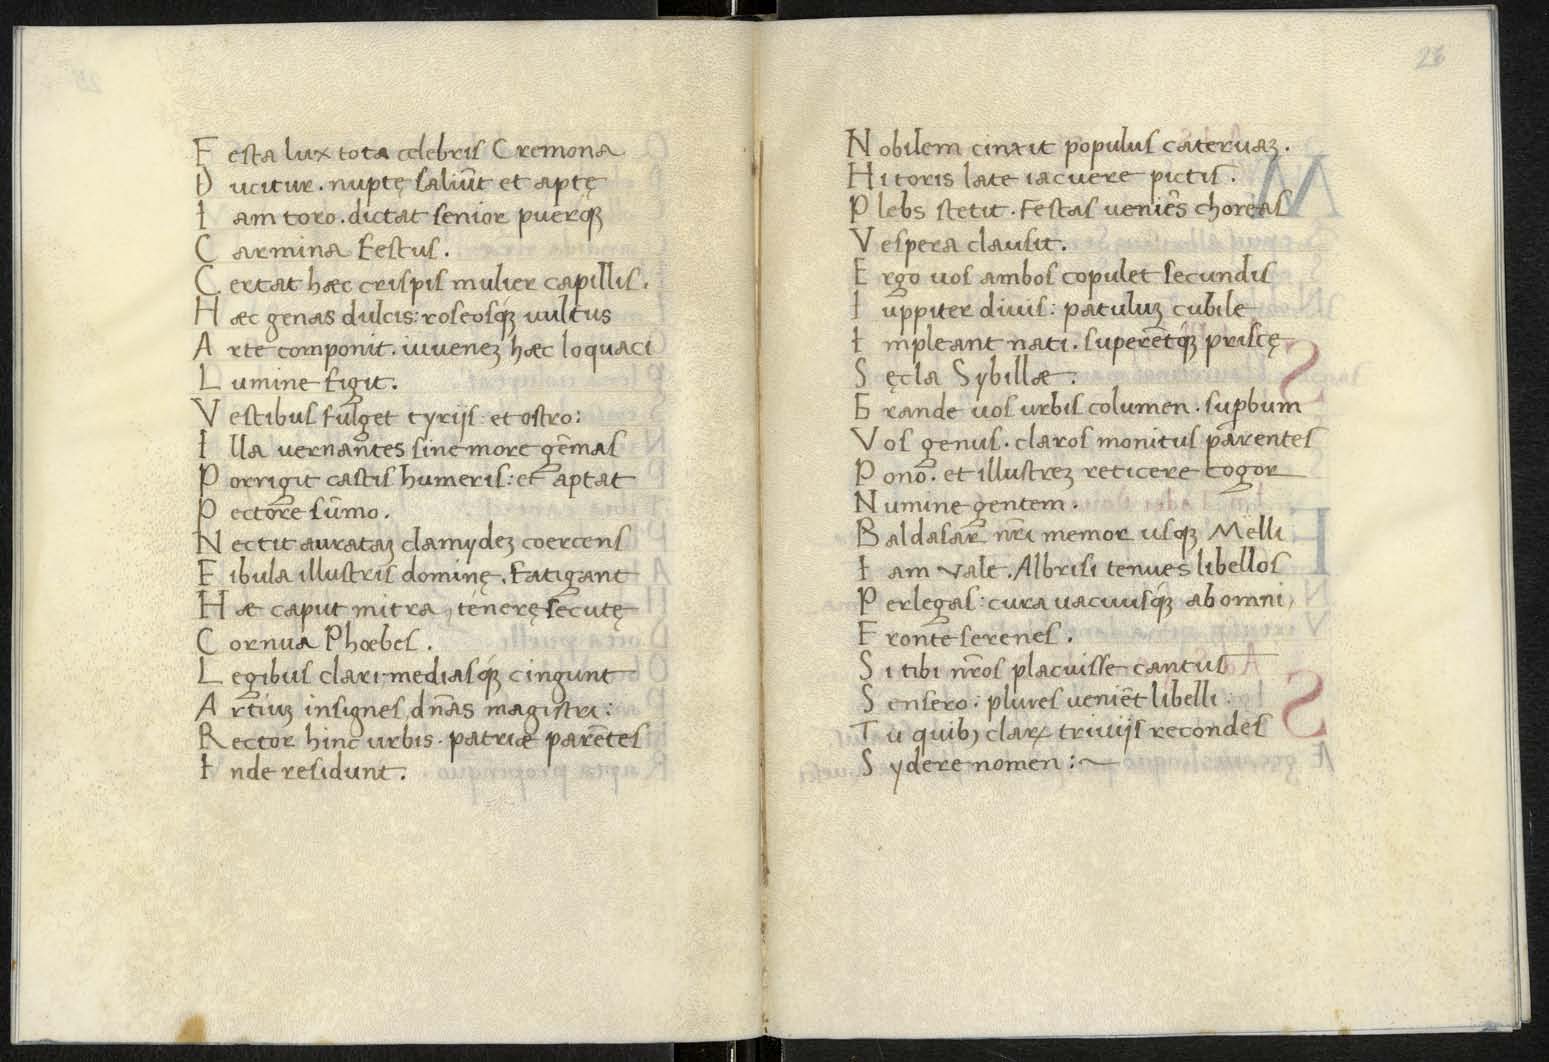 Festa lux tota celebris Cremona
Ducitur. nuptę saliũt et aptę
Iam toro. dictat senior puerq₃
Carmina Festus.
Certat hæc crispis mulier capillis.
Hæc genas dulcis: roseosq́₃ uultus
Arte componit. iuuenez hæc loquaci
Lumine figit.
Vestibus fulget tyrijs: et ostro:
Illa uernantes sine more gẽmas
Porrigit castis humeris: et aptat
Pectore sũmo.
Nectit aurataz clamydez coercens
Fibula illustris dominę. Fatigant
Hæ caput mitra, tenerę secutę
Cornua Phœbes.
Legibus clari: mediasq́₃ cingunt
Artiuz insignes dñas magistri:
Rector hinc urbis. patriæ parẽtes
Inde residunt.
28
Nobilem cinxit populus cateruaz.
Hi toris late iacuere pictis.
Plebs stetit. Festas ueniẽs choreas
Vespera clausit.
Ergo uos ambos copulet secundis
Iuppiter diuis: patuluz cubile
Impleant nati. superẽtq́₃ priscę
Sęcla Sybillæ.
Grande uos urbis columen. sup̱bum
Vos genus. claros monitus parentes
Pono. et illustrez reticere cogor
Numine gentem.
Baldasar̃ nr̃i memor usq₃ Melli
Iam vale. Albrisi tenues libellos
Perlegas: cura uacuusq₃ ab omni,
Fronte serenes.
Si tibi nr̃os placuisse cantus
Sensero: plures ueniẽt libelli:
Tu quib₃ claꝝ triuijs recondes
Sydere nomen:~